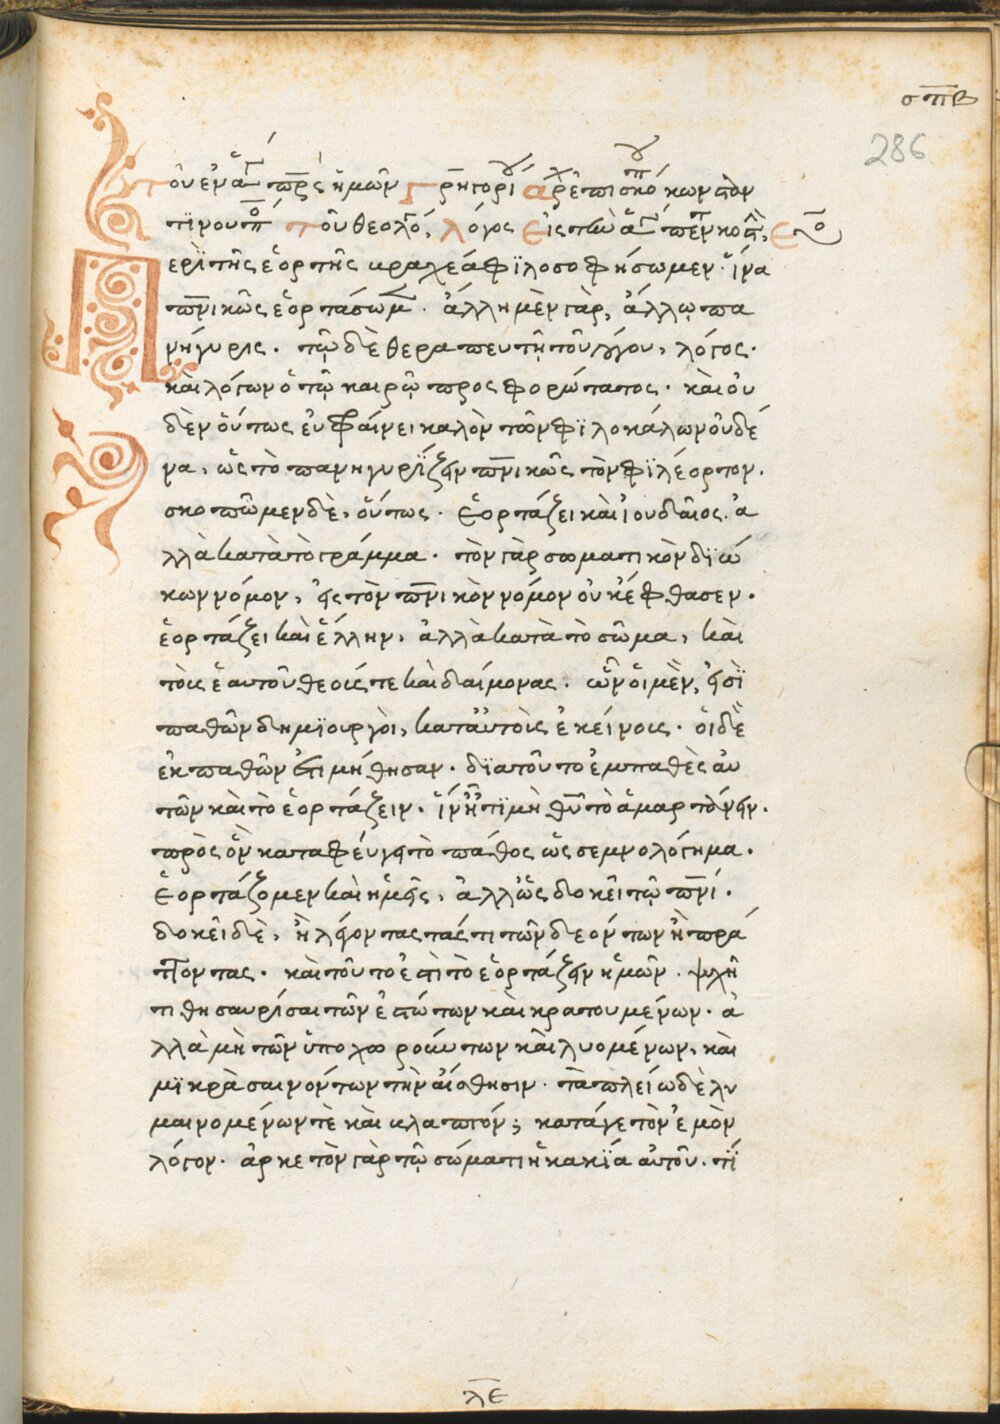 σπβ
286
Τοῦ ἐν ἁγ πρς ἡμῶν Γρηγορί ἀρχεπισκό κωνσταν
τίνουπ τοῦ θεολό, λόγος εἰς τὴν ἁγ πεντηκοστ,
Περὶ τῆς ἑορτῆς βραχέα φϊλοσοφήσωμεν· ἵνα
πνικῶς ἑορτάσωμ· ἄλλη μὲν γὰρ, ἄλλῳ πα
νήγυρις· τῷ δὲ θεραπευτῇ τοῦ λόγου, λόγος·
καὶ λόγων ὁ τῷ καιρῷ προσφορώτατος· καὶ οὐ
δὲν οὕτως εὐφραίνει καλὸν τῶν φϊλοκάλων οὐδέ
να, ὡς τὸ πανηγυρΐζειν πνικῶς τὸν φϊλέορτον.
σκοπῶμεν δὲ, οὕτως· ἑορτάζει καὶ ἰουδαῖος· ἀ
λλὰ κατὰ τὸ γράμμα· τὸν γὰρ σωματικὸν διώ
κων νόμον, εἰς τὸν πνικὸν νόμον οὐκ ἔφθασεν·
ἑορτάζει καὶ ἕλλην, ἀλλὰ κατὰ τὸ σῶμα, καὶ
τοὺς ἑαυτοῦ θεούς τε καὶ δαίμονας· ὧν οἱ μὲν, εἰσῒ
παθῶν δημϊουργοὶ, κατ' αὐτοὺς ἐκείνους· οἱ δὲ
ἐκ παθῶν ἐτιμήθησαν· δϊατοῦτο ἐμπαθὲς αὐ
τῶν καὶ τὸ ἑορτάζειν· ἵν' ᾖ τϊμὴ θυ τὸ ἁμαρτάνειν·
πρὸς ὃν καταφεύγει τὸ πάθος ὡς σεμνολόγημα·
ἑορτάζομεν καὶ ἡμεῖς, ἀλλ' ὡς δοκεῖ τῷ πνί·
δοκεῖ δὲ, ἢ λέγοντάς τι τῶν δεόντων ἢ πρά
ττοντας· καὶ τοῦτο ἐστὶ τὸ ἑορτάζειν ἡμῶν· ψυχῇ
τι θησαυρίσαι τῶν ἑστώτων καὶ κρατουμένων· ἀ
λλὰ μὴ τῶν ὑποχωρούντων καὶ λυομένων, καὶ
μϊκρὰ σαινόντων τὴν αἴσθησιν· τὰ πλείω δὲ λυ
μαινομένων τὲ καὶ βλαπτόν; κατάγε τὸν ἐμὸν
λόγον· ἀρκετὸν γὰρ τῷ σώματι ἡ κακία αὐτοῦ· τί
λε